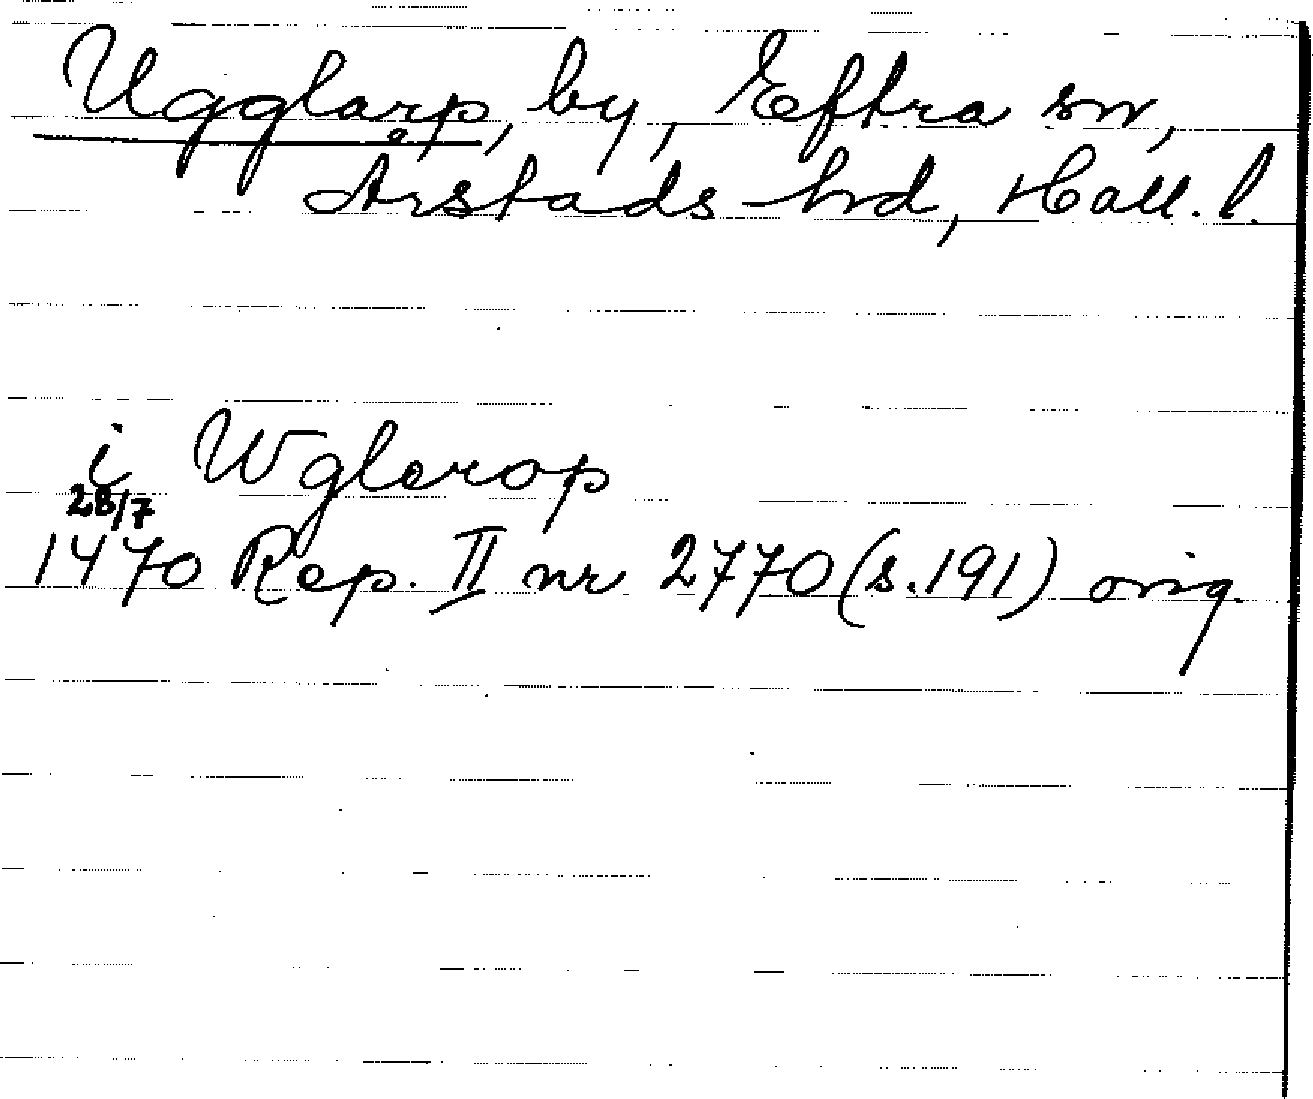 Ugglarp, by, Eftra sn,
Årstads hd, Hall. l.
i Wglerop
28/7
1470 Rep. II nr 2770 (s. 191) orig.